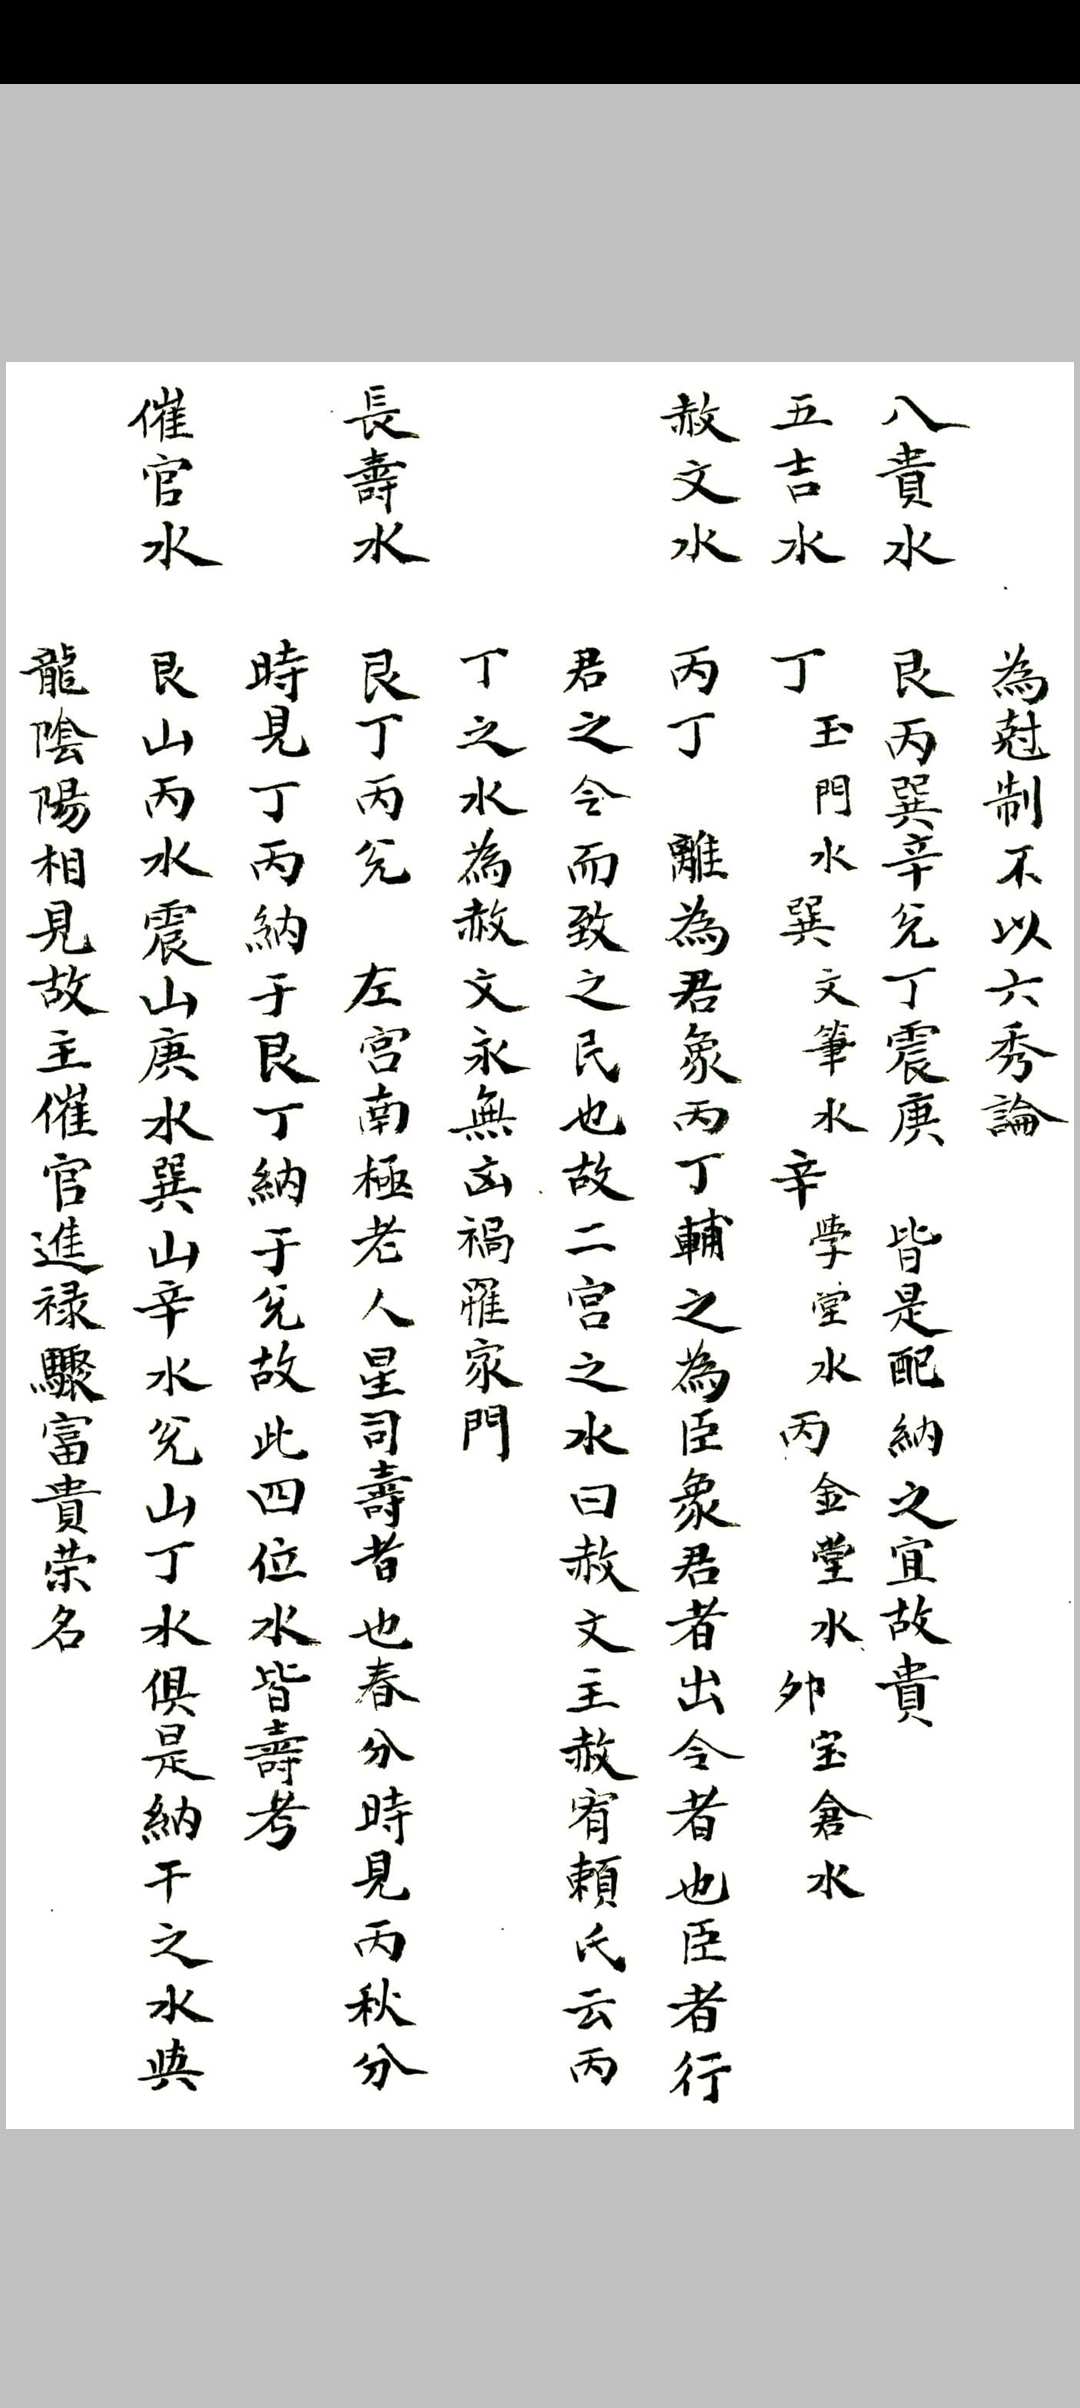 為尅制不以六秀論
八貴水 艮丙巽辛兊丁震庚 皆是配納之宜故貴
五吉水 丁玉門水 巽文筆水 辛學堂水 丙金堂水 卯宝倉水
赦文水 丙丁 離為君象丙丁輔之為臣象君者出令者也臣者行
君之令而致之民也故二宮之水曰赦文主赦宥頼氏云丙
丁之水為赦文永無凶禍罹家門
長壽水 艮丁丙兊 左宮南極老人星司壽者也春分時見丙秋分
時見丁丙納于艮丁納于兊故此四位水皆壽考
催官水 艮山丙水震山庚水巽山辛水兊山丁水俱是納干之水與
龍陰陽相見故主催官進禄驟富貴荣名